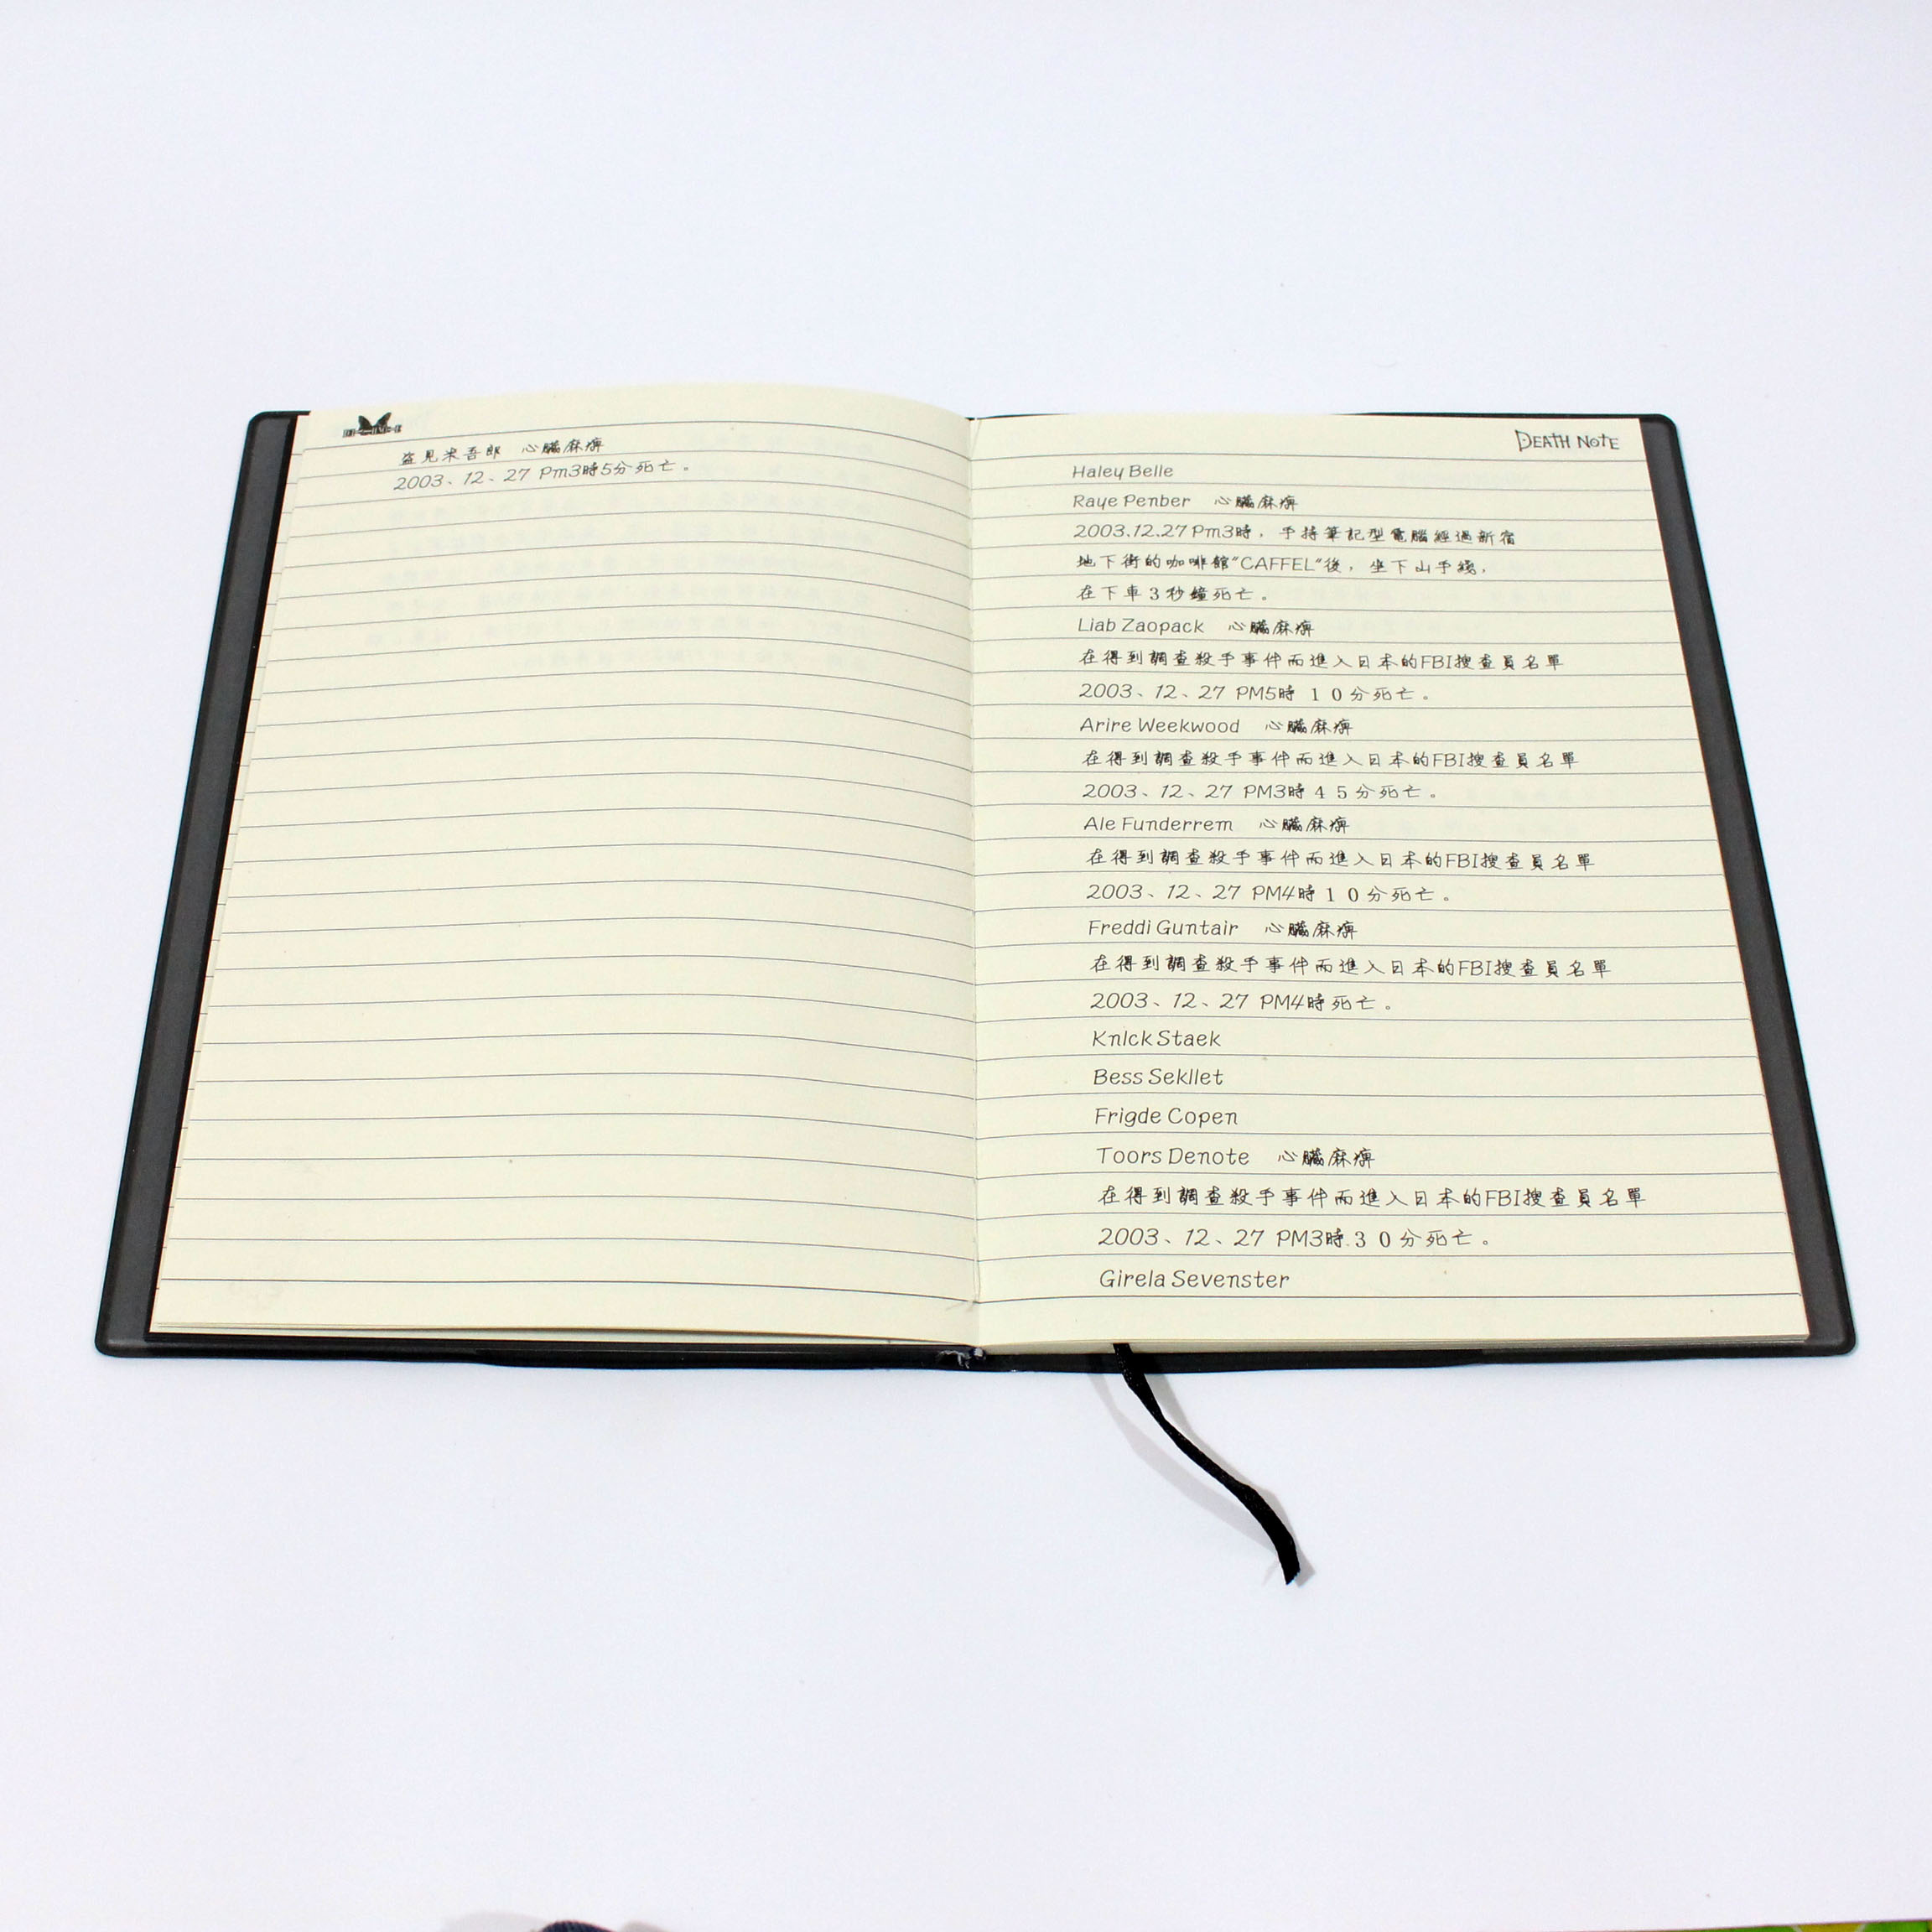 盗見米吾郎 心臟麻痹
2003、12、27 Pm3時5分死亡。
DEATH NOTE
Haley Belle
Raye Penber 心臟麻痹
2003.12.27 Pm3時，手持筆記型電腦經過新宿
地下街的咖啡館"CAFFEL"後，坐下山手綫，
在下車3秒鐘死亡。
Liab Zaopack 心臟麻痹
在得到調查殺手事件而進入日本的FBI搜查員名單
2003、12、27 PM5時10分死亡。
Arire Weekwood 心臟麻痹
在得到調查殺手事件而進入日本的FBI搜查員名單
2003、12、27 PM3時45分死亡。
Ale Funderrem 心臟麻痹
在得到調查殺手事件而進入日本的FBI搜查員名單
2003、12、27 PM4時10分死亡。
Freddi Guntair 心臟麻痹
在得到調查殺手事件而進入日本的FBI搜查員名單
2003、12、27 PM4時死亡。
Knlck Staek
Bess Sekllet
Frigde Copen
Toors Denote 心臟麻痹
在得到調查殺手事件而進入日本的FBI搜查員名單
2003、12、27 PM3時.30分死亡。
Girela Sevenster